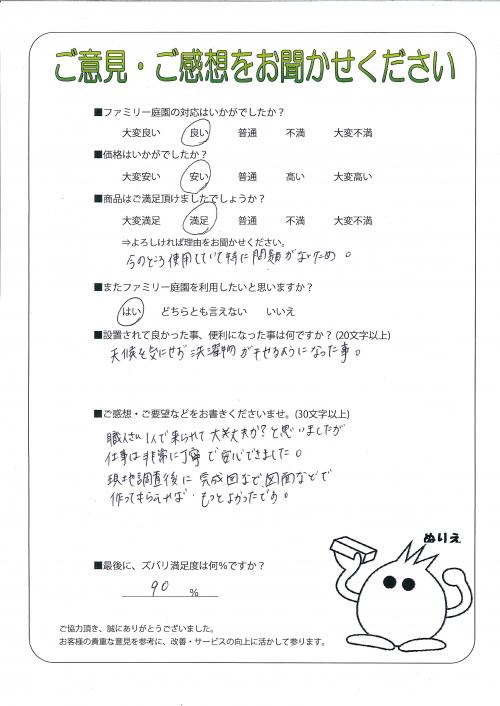 ご意見・ご感想をお聞かせください
■ファミリー庭園の対応はいかがでしたか？
大変良い 良い 普通 不満 大変不満
■価格はいかがでしたか？
大変安い 安い 普通 高い 大変高い
■商品はご満足頂けましたでしょうか？
大変満足 満足 普通 不満 大変不満
⇒よろしければ理由をお聞かせください。
今のところ使用していて特に問題がないため。
■またファミリー庭園を利用したいと思いますか？
はい どちらとも言えない いいえ
■設置されて良かった事、便利になった事は何ですか？(20文字以上)
天候を気にせず洗濯物が干せるようになった事。
■ご感想・ご要望などをお書きくださいませ。(30文字以上)
職人さん1人で来られて大丈夫か？と思いましたが
仕事は非常に丁寧で安心できました。
現地調査後に完成図など図面などで
作ってもらえれば もっとよかったです。
ぬりえ
■最後に、ズバリ満足度は何%ですか？
90 %
ご協力頂き、誠にありがとうございました。
お客様の貴重な意見を参考に、改善・サービスの向上に活かして参ります。